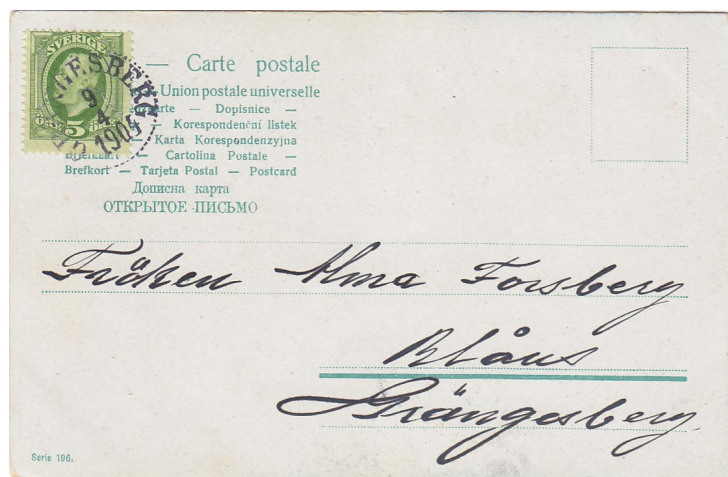 SVERIGE
5 ÖRE
GESBERG
9
4
1904
— Carte postale
Union postale universelle
— Dopisnice —
— Korespondenční listek
— Karta Korespondenzyjna
Briefkaart — Cartolina Postale —
Brefkort — Tarjeta Postal — Postcard
Дописна карта
ОТКРЫТОЕ ПИСЬМО
Fröken Alma Forsberg
Blåns
Grängesberg
Serie 196.